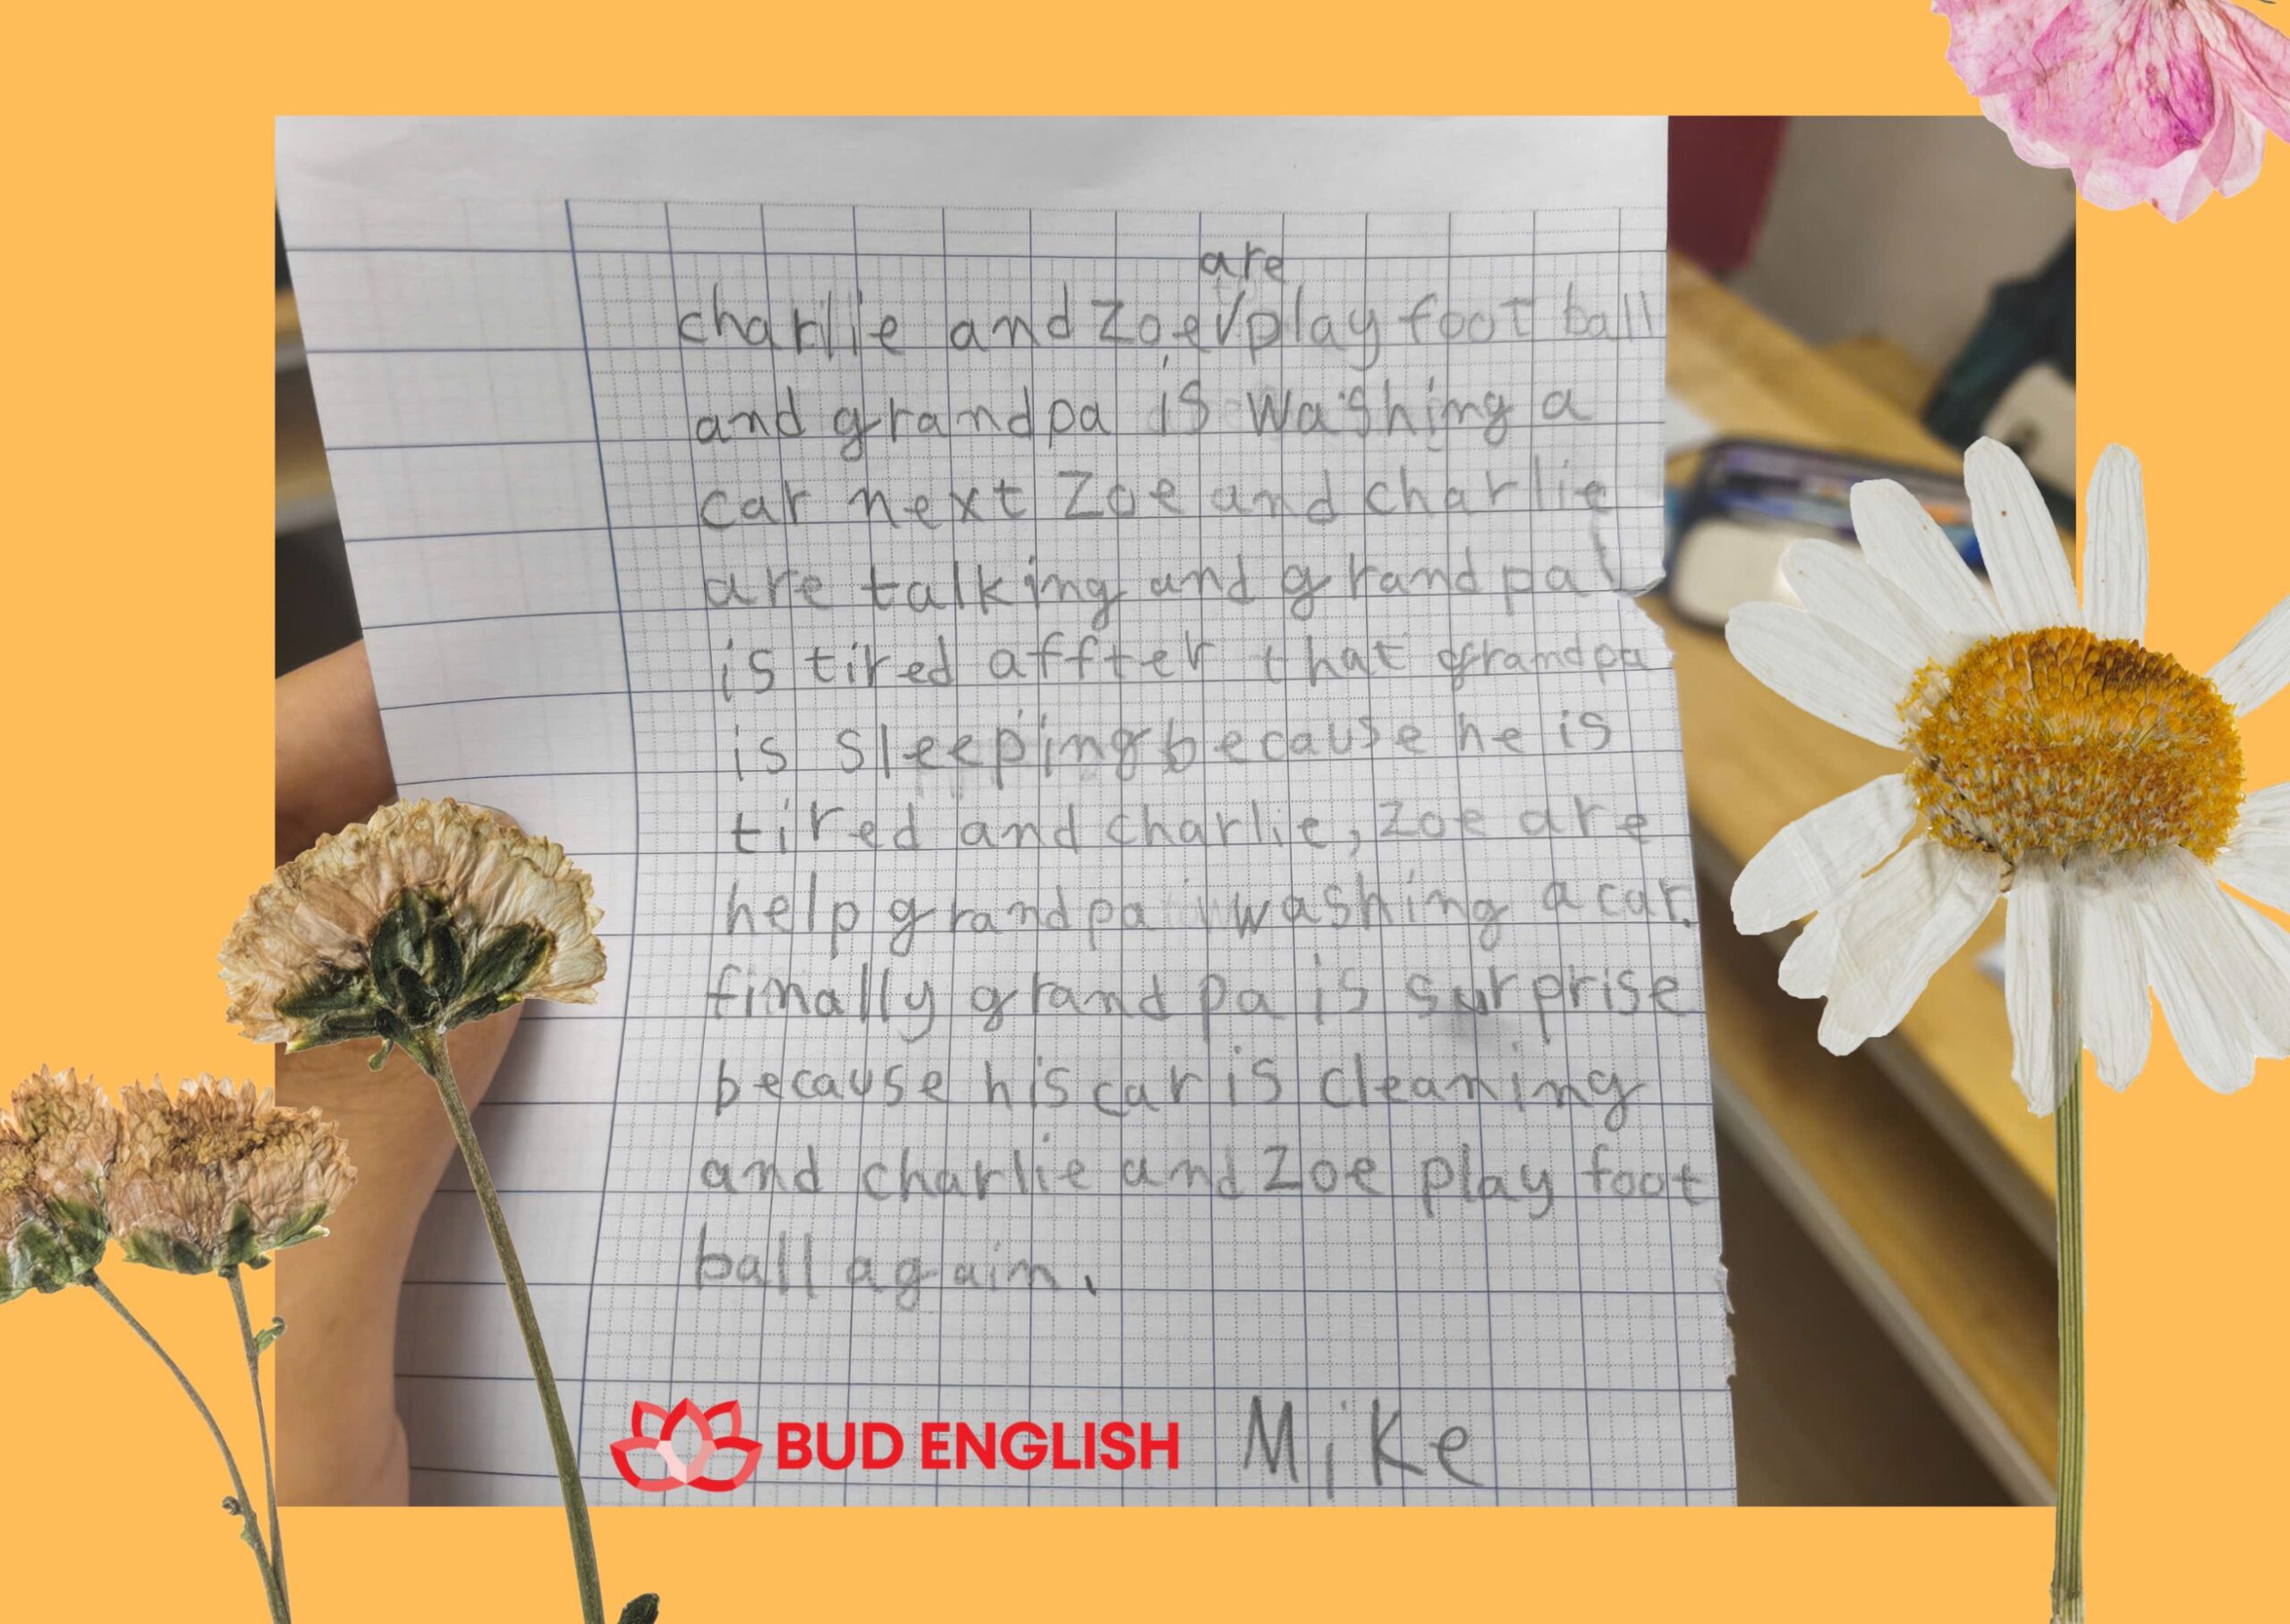 are
charlie and Zoe play foot ball
and grandpa is washing a
car next Zoe and charlie
are talking and grandpa
is tired affter that grandpa
is sleeping because he is
tired and charlie, Zoe are
help grandpa washing a car.
finally grandpa is surprise
because his car is cleaning
and charlie and Zoe play foot
ball again.
BUD ENGLISH Mike